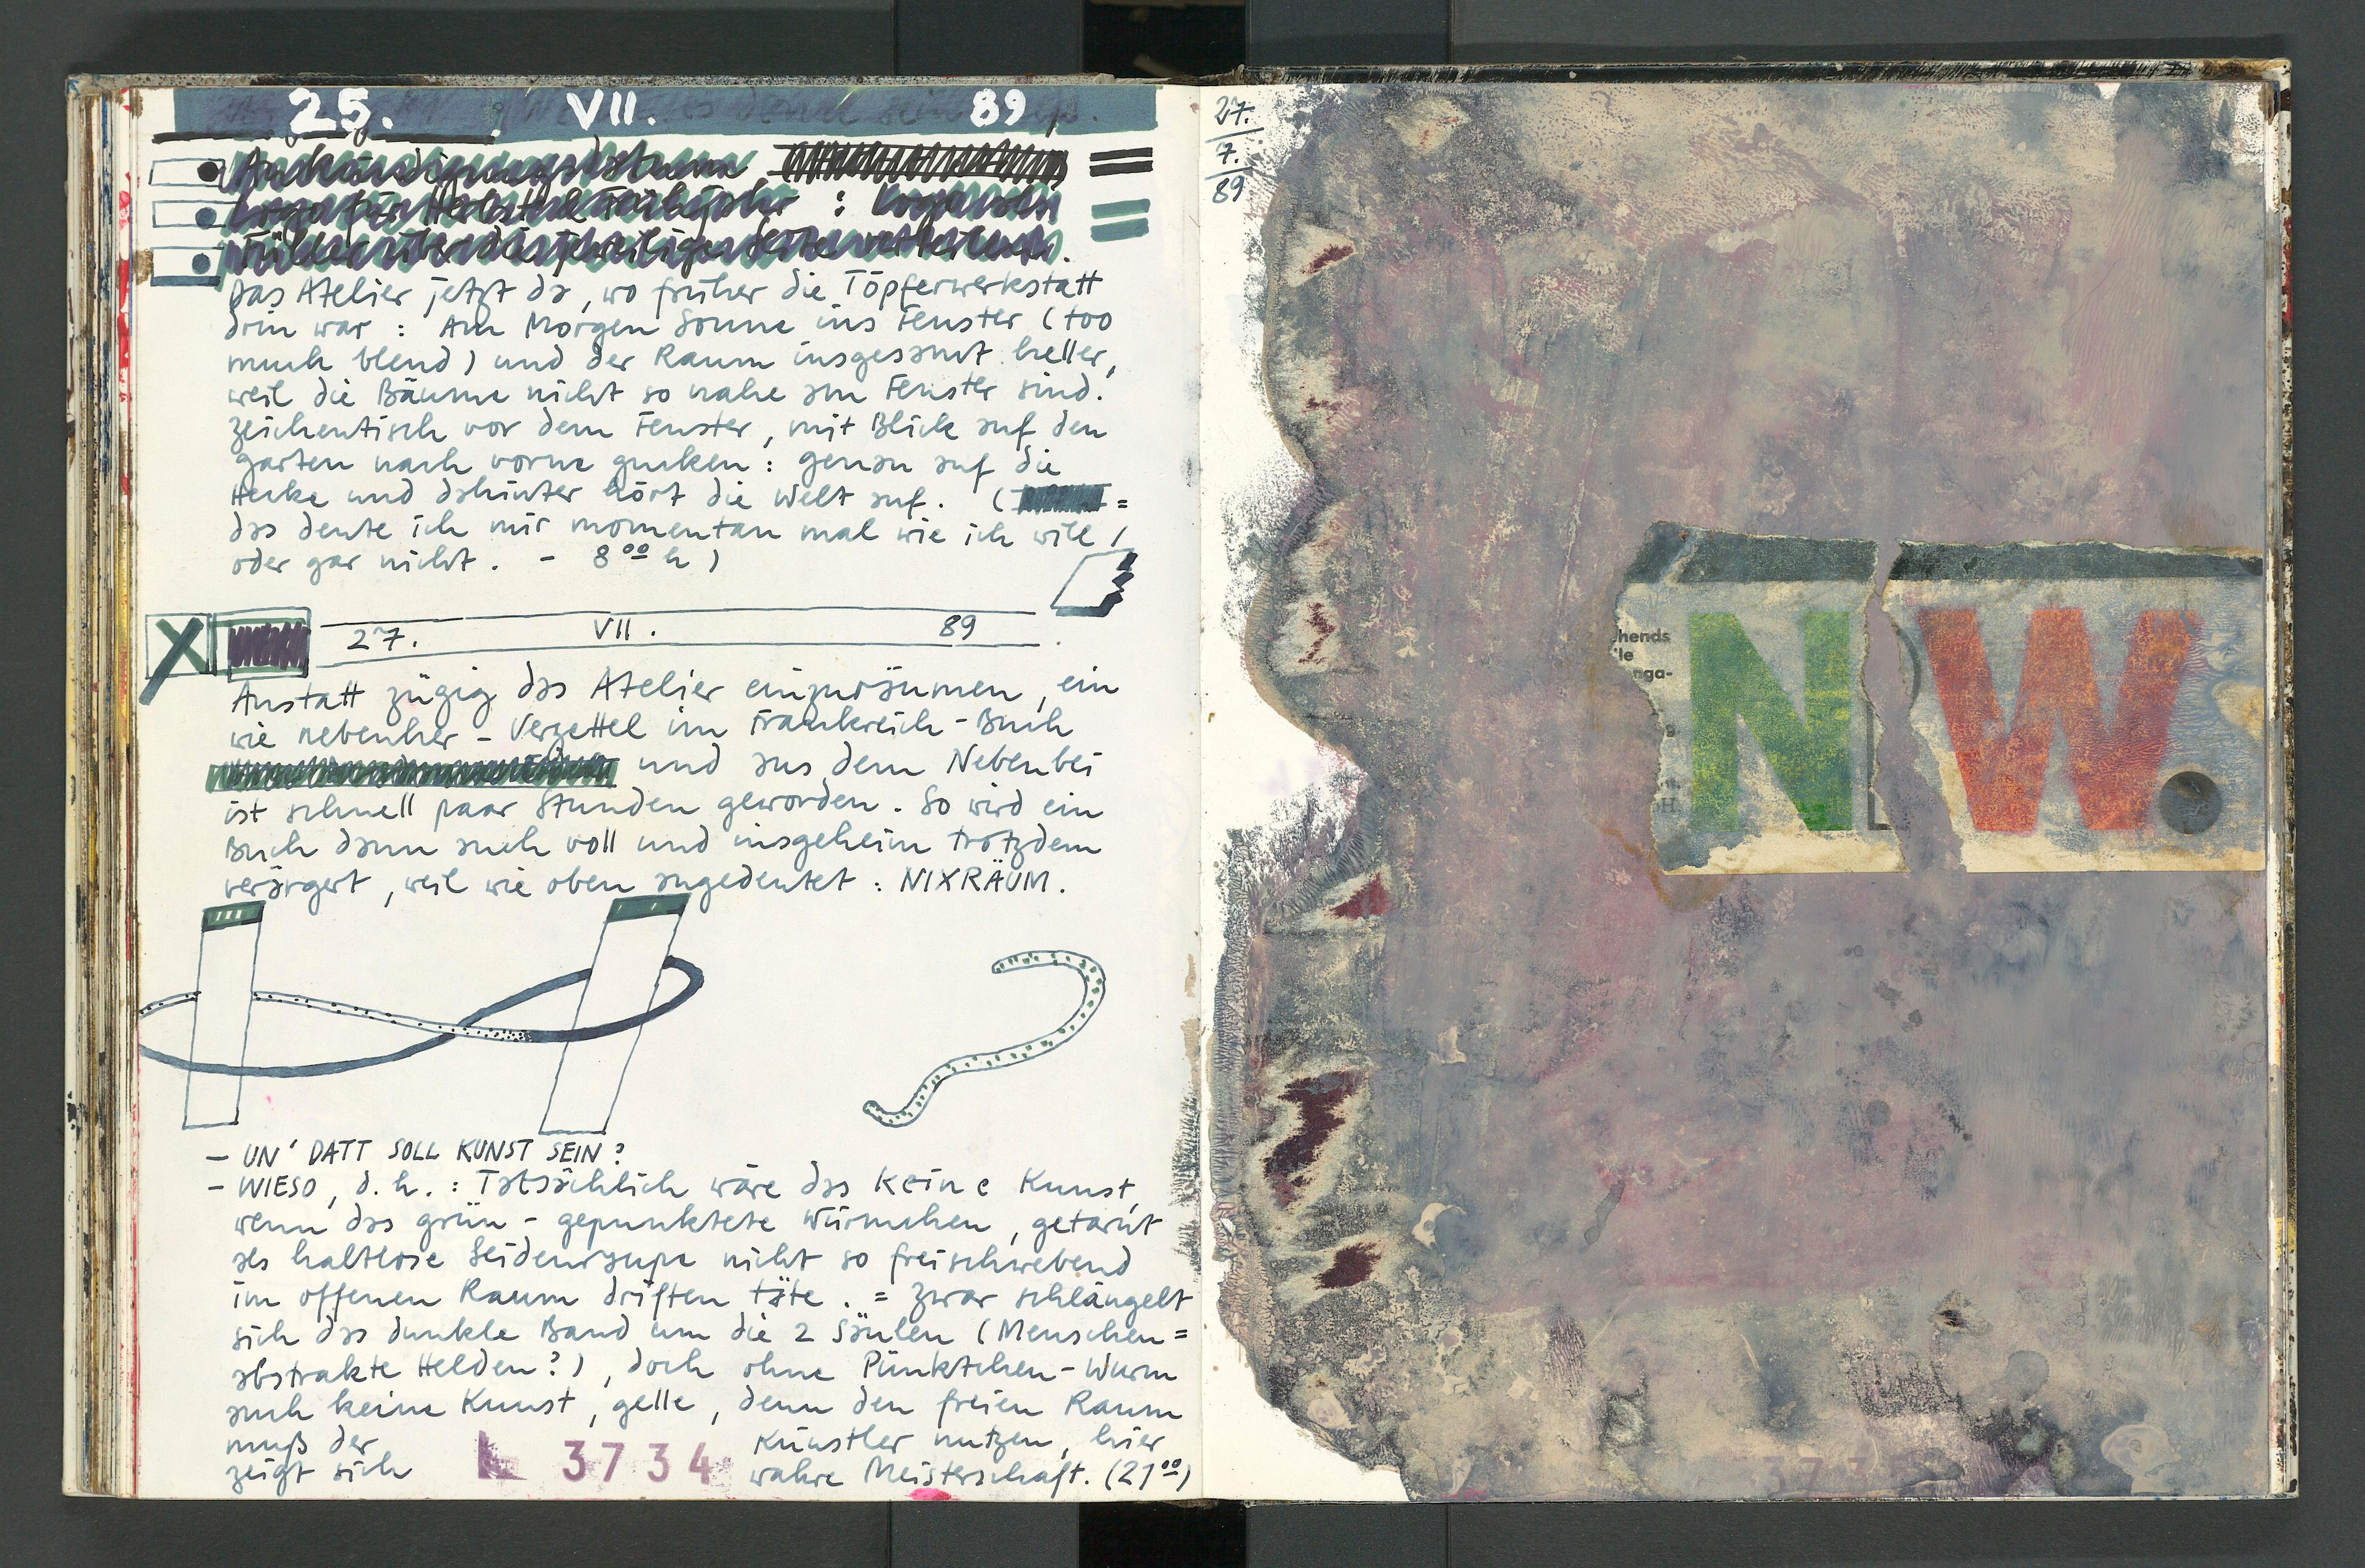 25. VII. 89
Das Atelier jetzt da, wo früher die Töpferwerkstatt
drin war : Am Morgen Sonne ins Fenster (too
much blend) und der Raum insgesamt heller,
weil die Bäume nicht so nahe am Fenster sind.
Zeichentisch vor dem Fenster, mit Blick auf den
Garten nach vorne gucken : genau auf die
Hecke und dahinter hört die Welt auf. ( =
das deute ich mir momentan mal wie ich will /
oder gar nicht. - 8⁰⁰ h )
27. VII. 89
Anstatt zügig das Atelier einzuräumen, ein
wie nebenher - Verzettel im Frankreich - Buch
und aus dem Nebenbei
ist schnell paar Stunden geworden. So wird ein
Buch dann auch voll und insgeheim trotzdem
verärgert, weil wie oben angedeutet : NIXRÄUM.
- UN' DATT SOLL KUNST SEIN?
- WIESO, d.h. : Tatsächlich wäre das keine Kunst,
wenn das grün - gepunktete Würmchen, getarnt
als haltlose Seidenraupe nicht so freischwebend
im offenen Raum driften täte. = Zwar schlängelt
sich das dunkle Band um die 2 Säulen (Menschen =
abstrakte Helden?), doch ohne Pünktchen - Wurm
auch keine Kunst, gelle, denn den freien Raum
muß der Künstler nutzen, hier
zeigt sich wahre Meisterschaft. (21⁰⁰)
3734
27.
7.
89
hends
nga-
N W.